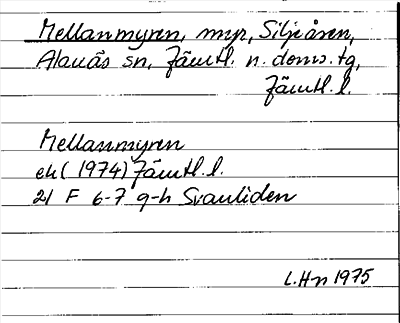 Mellanmyren, myr, Siljeåsen,
Alanäs sn, Jämtl. n. domv. tg,
Jämtl. l.
Mellanmyren
ek (1974) Jämtl. l.
21 F 6-7 g-h Svanliden
L.H-n 1975